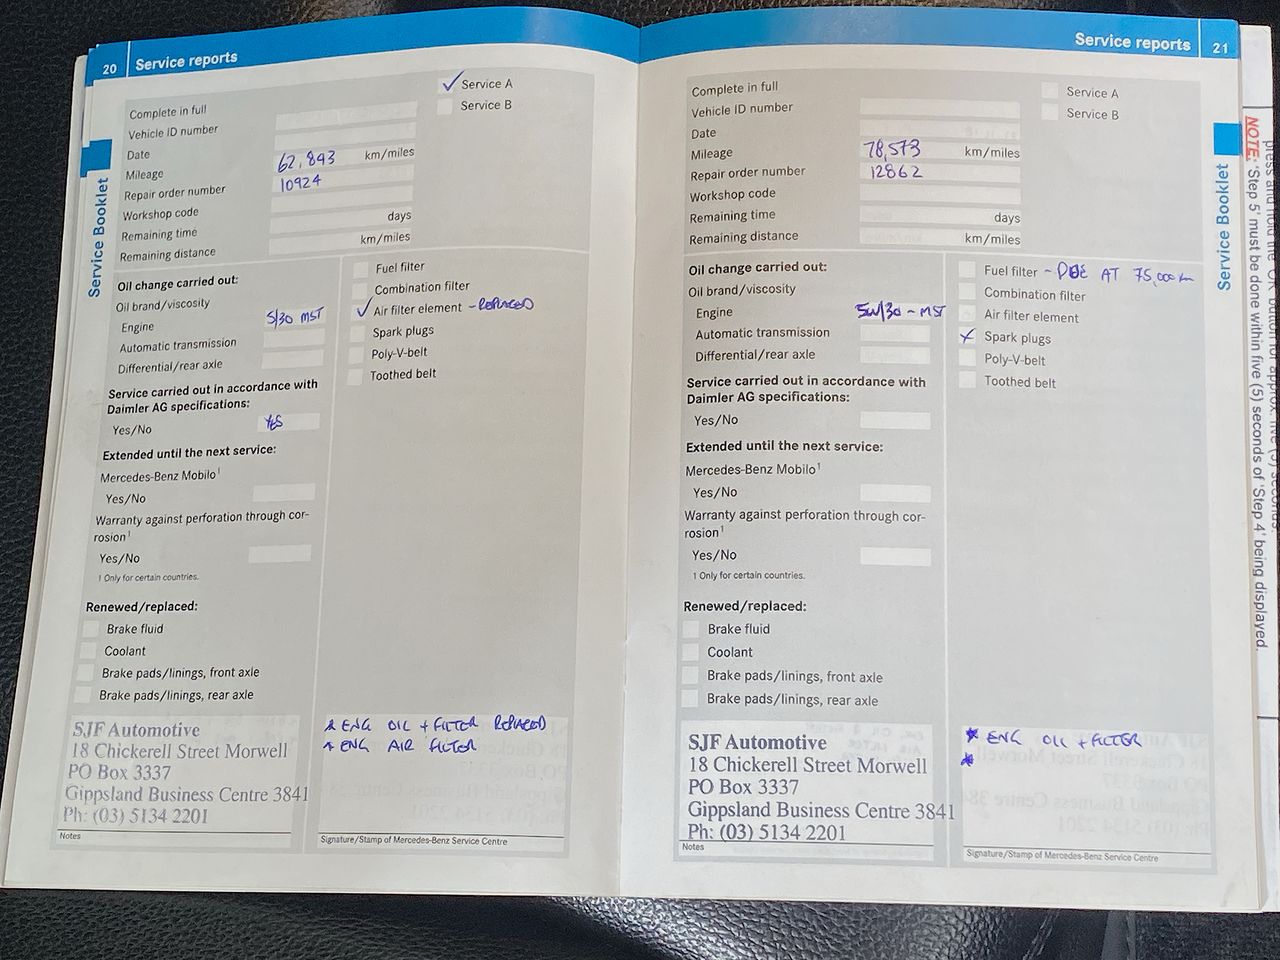 20 Service reports
Service Booklet
✓ Service A
Service B
Complete in full
Vehicle ID number
Date
Mileage 62,843 km/miles
Repair order number 10924
Workshop code
Remaining time days
Remaining distance km/miles
Oil change carried out:
Oil brand/viscosity
Engine 5/30 MST
Automatic transmission
Differential/rear axle
Service carried out in accordance with
Daimler AG specifications:
Yes/No YES
Extended until the next service:
Mercedes-Benz Mobilo¹
Yes/No
Warranty against perforation through cor-
rosion¹
Yes/No
1 Only for certain countries.
Renewed/replaced:
Brake fluid
Coolant
Brake pads/linings, front axle
Brake pads/linings, rear axle
Fuel filter
Combination filter
✓ Air filter element - REPLACED
Spark plugs
Poly-V-belt
Toothed belt
SJF Automotive
18 Chickerell Street Morwell
PO Box 3337
Gippsland Business Centre 3841
Ph: (03) 5134 2201
Notes
* ENG OIL + FILTER REPLACED
* ENG AIR FILTER
Signature/Stamp of Mercedes-Benz Service Centre
Service reports 21
Service Booklet
Service A
Service B
Complete in full
Vehicle ID number
Date
Mileage 78,573 km/miles
Repair order number 12862
Workshop code
Remaining time days
Remaining distance km/miles
Oil change carried out:
Oil brand/viscosity
Engine 5W/30 - MST
Automatic transmission
Differential/rear axle
Service carried out in accordance with
Daimler AG specifications:
Yes/No
Extended until the next service:
Mercedes-Benz Mobilo¹
Yes/No
Warranty against perforation through cor-
rosion¹
Yes/No
1 Only for certain countries.
Renewed/replaced:
Brake fluid
Coolant
Brake pads/linings, front axle
Brake pads/linings, rear axle
Fuel filter - DUE AT 75,000 km
Combination filter
Air filter element
Spark plugs
Poly-V-belt
Toothed belt
SJF Automotive
18 Chickerell Street Morwell
PO Box 3337
Gippsland Business Centre 3841
Ph: (03) 5134 2201
Notes
* ENG OIL + FILTER
*
Signature/Stamp of Mercedes-Benz Service Centre
press and hold the 'OK' button for approx. five (5) seconds.
NOTE: 'Step 5' must be done within five (5) seconds of 'Step 4' being displayed.